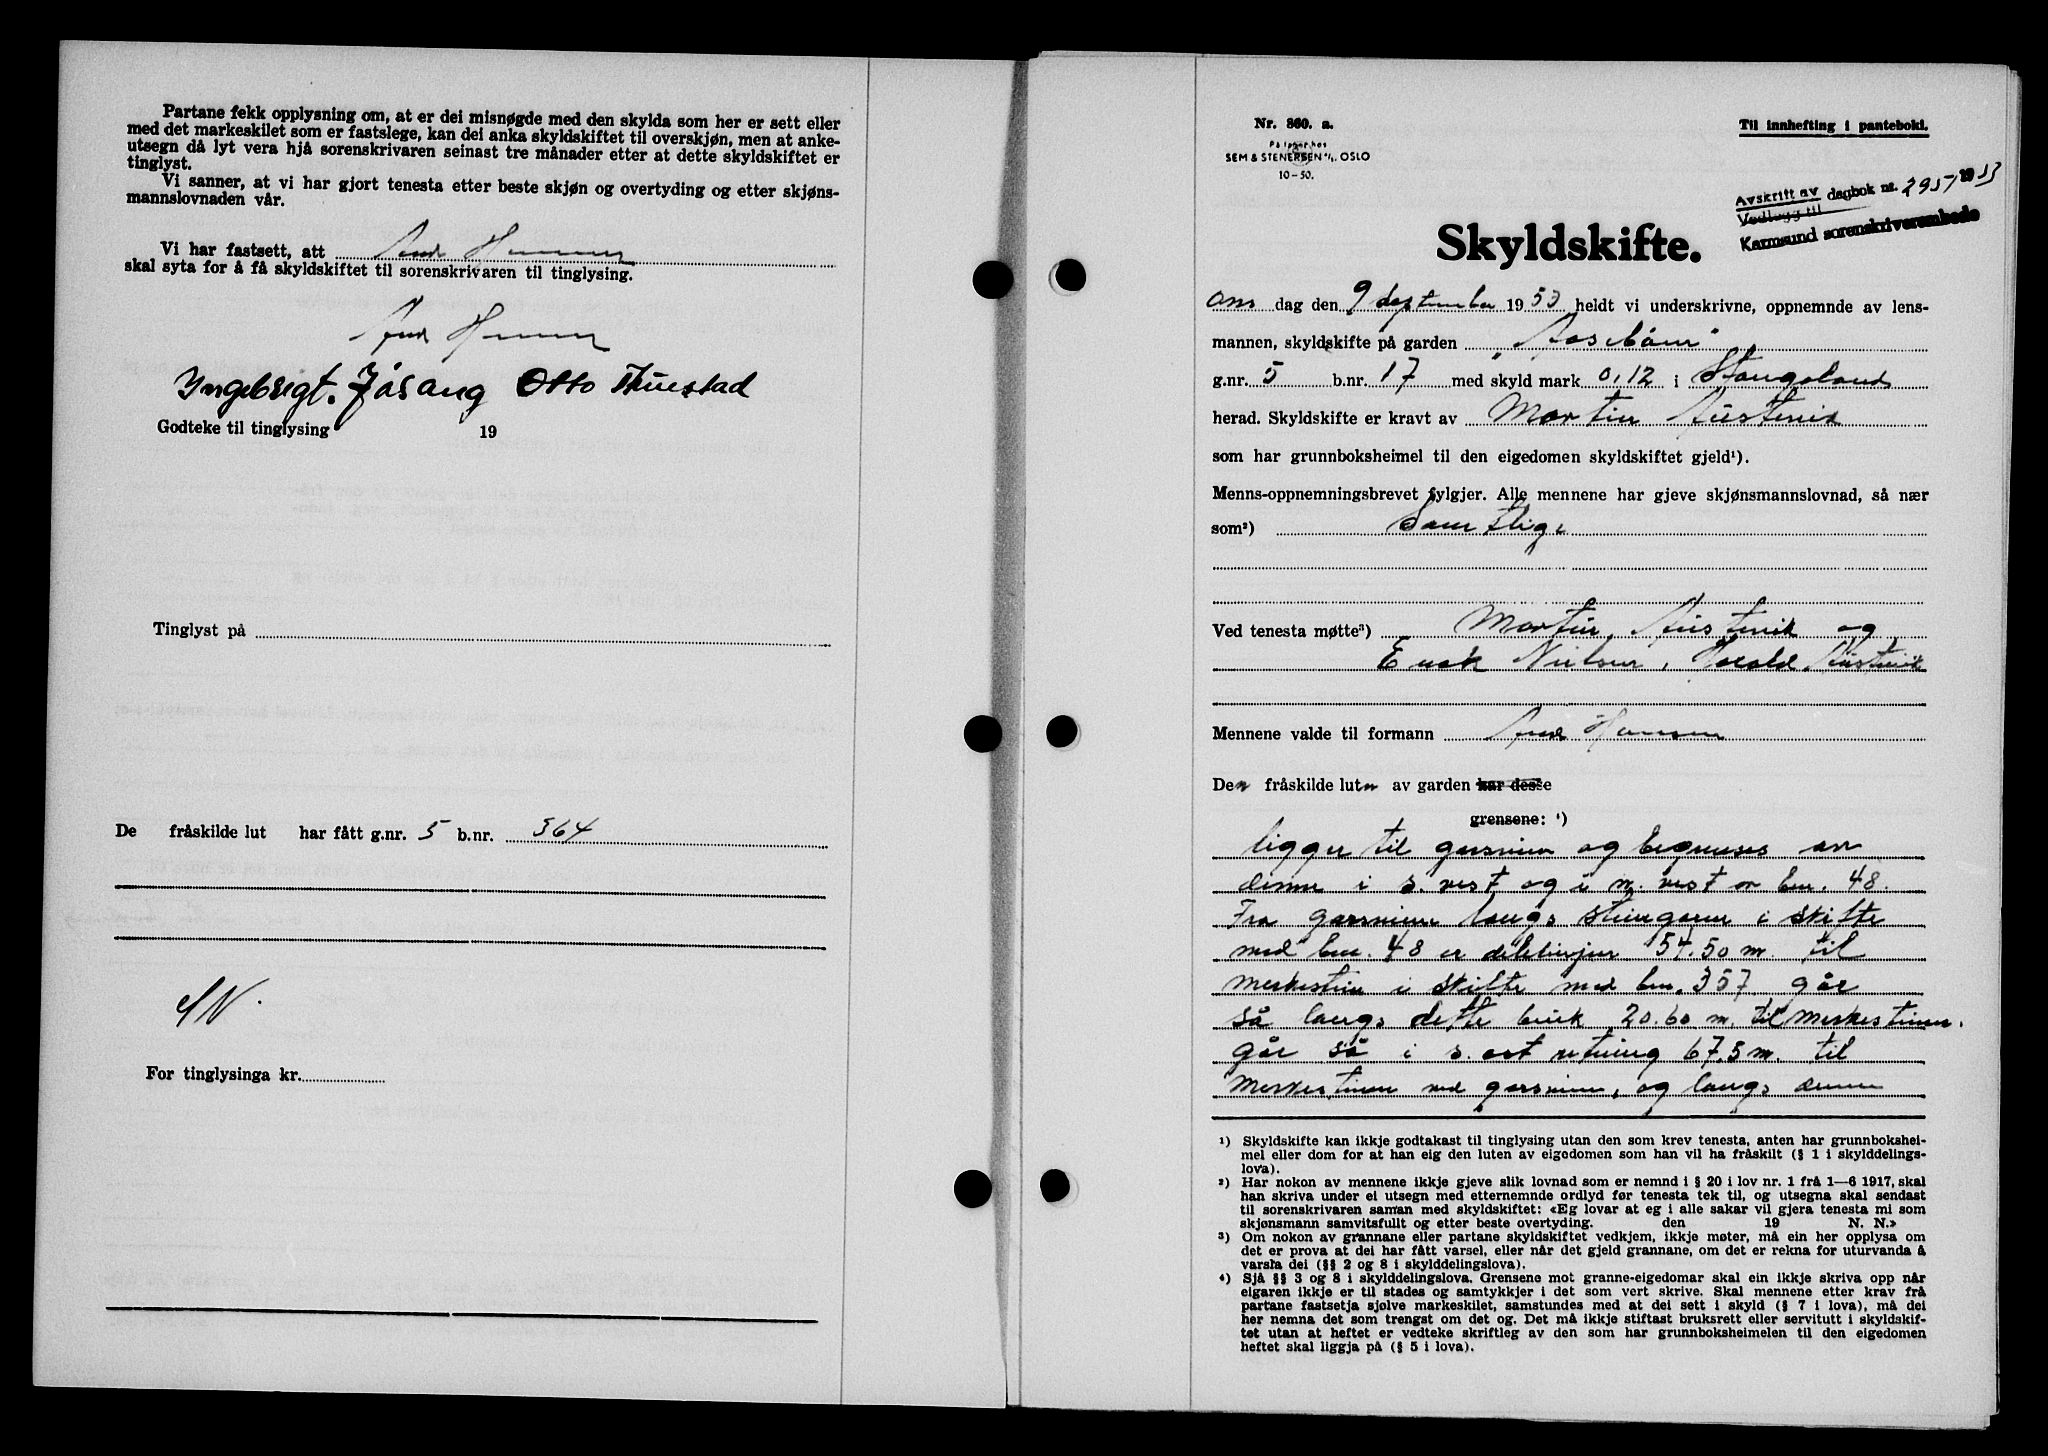 Partane fekk opplysning om, at er dei misnøgde med den skylda som her er sett eller
med det markeskilet som er fastslege, kan dei anka skyldskiftet til overskjøn, men at anke-
utsegn då lyt vera hjå sorenskrivaren seinast tre månader etter at dette skyldskiftet er
tinglyst.
Vi sanner, at vi har gjort tenesta etter beste skjøn og overtyding og etter skjøns-
mannslovnaden vår.
Vi har fastsett, att
skal syta for å få skyldskiftet til sorenskrivaren til tinglysing.
Ingebrigt. Jåsang Otto Thuestad
Godteke til tinglysing 19
Tinglyst på
De fråskilde lut har fått g.nr. 5 b.nr. 364
For tinglysinga kr.
Nr. 860. a.
På lager hos
SEM & STENERSEN A/S, OSLO
10-50.
Til innhefting i panteboki.
Avskrift av dagbok nr. 2957 1953
Vedlegg til
Karmsund sorenskriverembede
Skyldskifte.
ons dag den 9 september 1953 heldt vi underskrivne, oppnemnde av lens-
mannen, skyldskifte på garden
g.nr. 5 b.nr. 17 med skyld mark 0,12 i Stangaland
herad. Skyldskifte er kravt av Martin Austevik
som har grunnboksheimel til den eigedomen skyldskiftet gjeld¹).
Menns-oppnemningsbrevet fylgjer. Alle mennene har gjeve skjønsmannslovnad, så nær
som²) Samtlige
Ved tenesta møtte³) Martin Austevik og
Enok Nielsen, Harald Austevik
Mennene valde til formann And Hansen
Den fråskilde luten av garden har desse
grensene: ⁴)
ligger til garsveien og begrenses av
denne i s. vest og i n. vest av bnr. 48.
Fra garsveien langs steingaren i skifte
med bnr. 48 er delelinjen 54.50 m. til
merkestein i skifte med bnr. 357 går
så langs dette bruk 20.60 m. til merkesteinen.
går så i s. ost retning 67.5 m. til
merkesteinen ved garsveien, og langs denne
¹) Skyldskifte kan ikkje godtakast til tinglysing utan den som krev tenesta, anten har grunnbokshei-
mel eller dom for at han eig den luten av eigedomen som han vil ha fråskilt (§ 1 i skylddelings-
lova).
²) Har nokon av mennene ikkje gjeve slik lovnad som er nemnd i § 20 i lov nr. 1 frå 1—6 1917, skal
han skriva under ei utsegn med etternemnde ordlyd før tenesta tek til, og utsegna skal sendast
til sorenskrivaren saman med skyldskiftet: «Eg lovar at eg i alle sakar vil gjera tenesta mi som
skjønsmann samvitsfullt og etter beste overtyding. den 19 N. N.»
³) Om nokon av grannane eller partane skyldskiftet vedkjem, ikkje møter, må ein her opplysa om
det er prova at dei har fått varsel, eller når det gjeld grannane, om det er rekna for uturvanda å
varsla dei (§§ 2 og 8 i skylddelingslova).
⁴) Sjå §§ 3 og 8 i skylddelingslova. Grensene mot granne-eigedomar skal ein ikkje skriva opp når
eigaren ikkje er til stades og samtykkjer i det som vert skrive. Skal mennene etter krav frå
partane fastsetja sjølve markeskilet, samstundes med at dei sett i skyld (§ 7 i lova), må dei
her nemna det som trengst om det og. Det må ikkje stiftast bruksrett eller servitutt i skyldskif-
tet utan at heftet er vedteke skriftleg av den som har grunnboksheimelen til den eigedomen
heftet skal liggja på (§ 5 i lova).